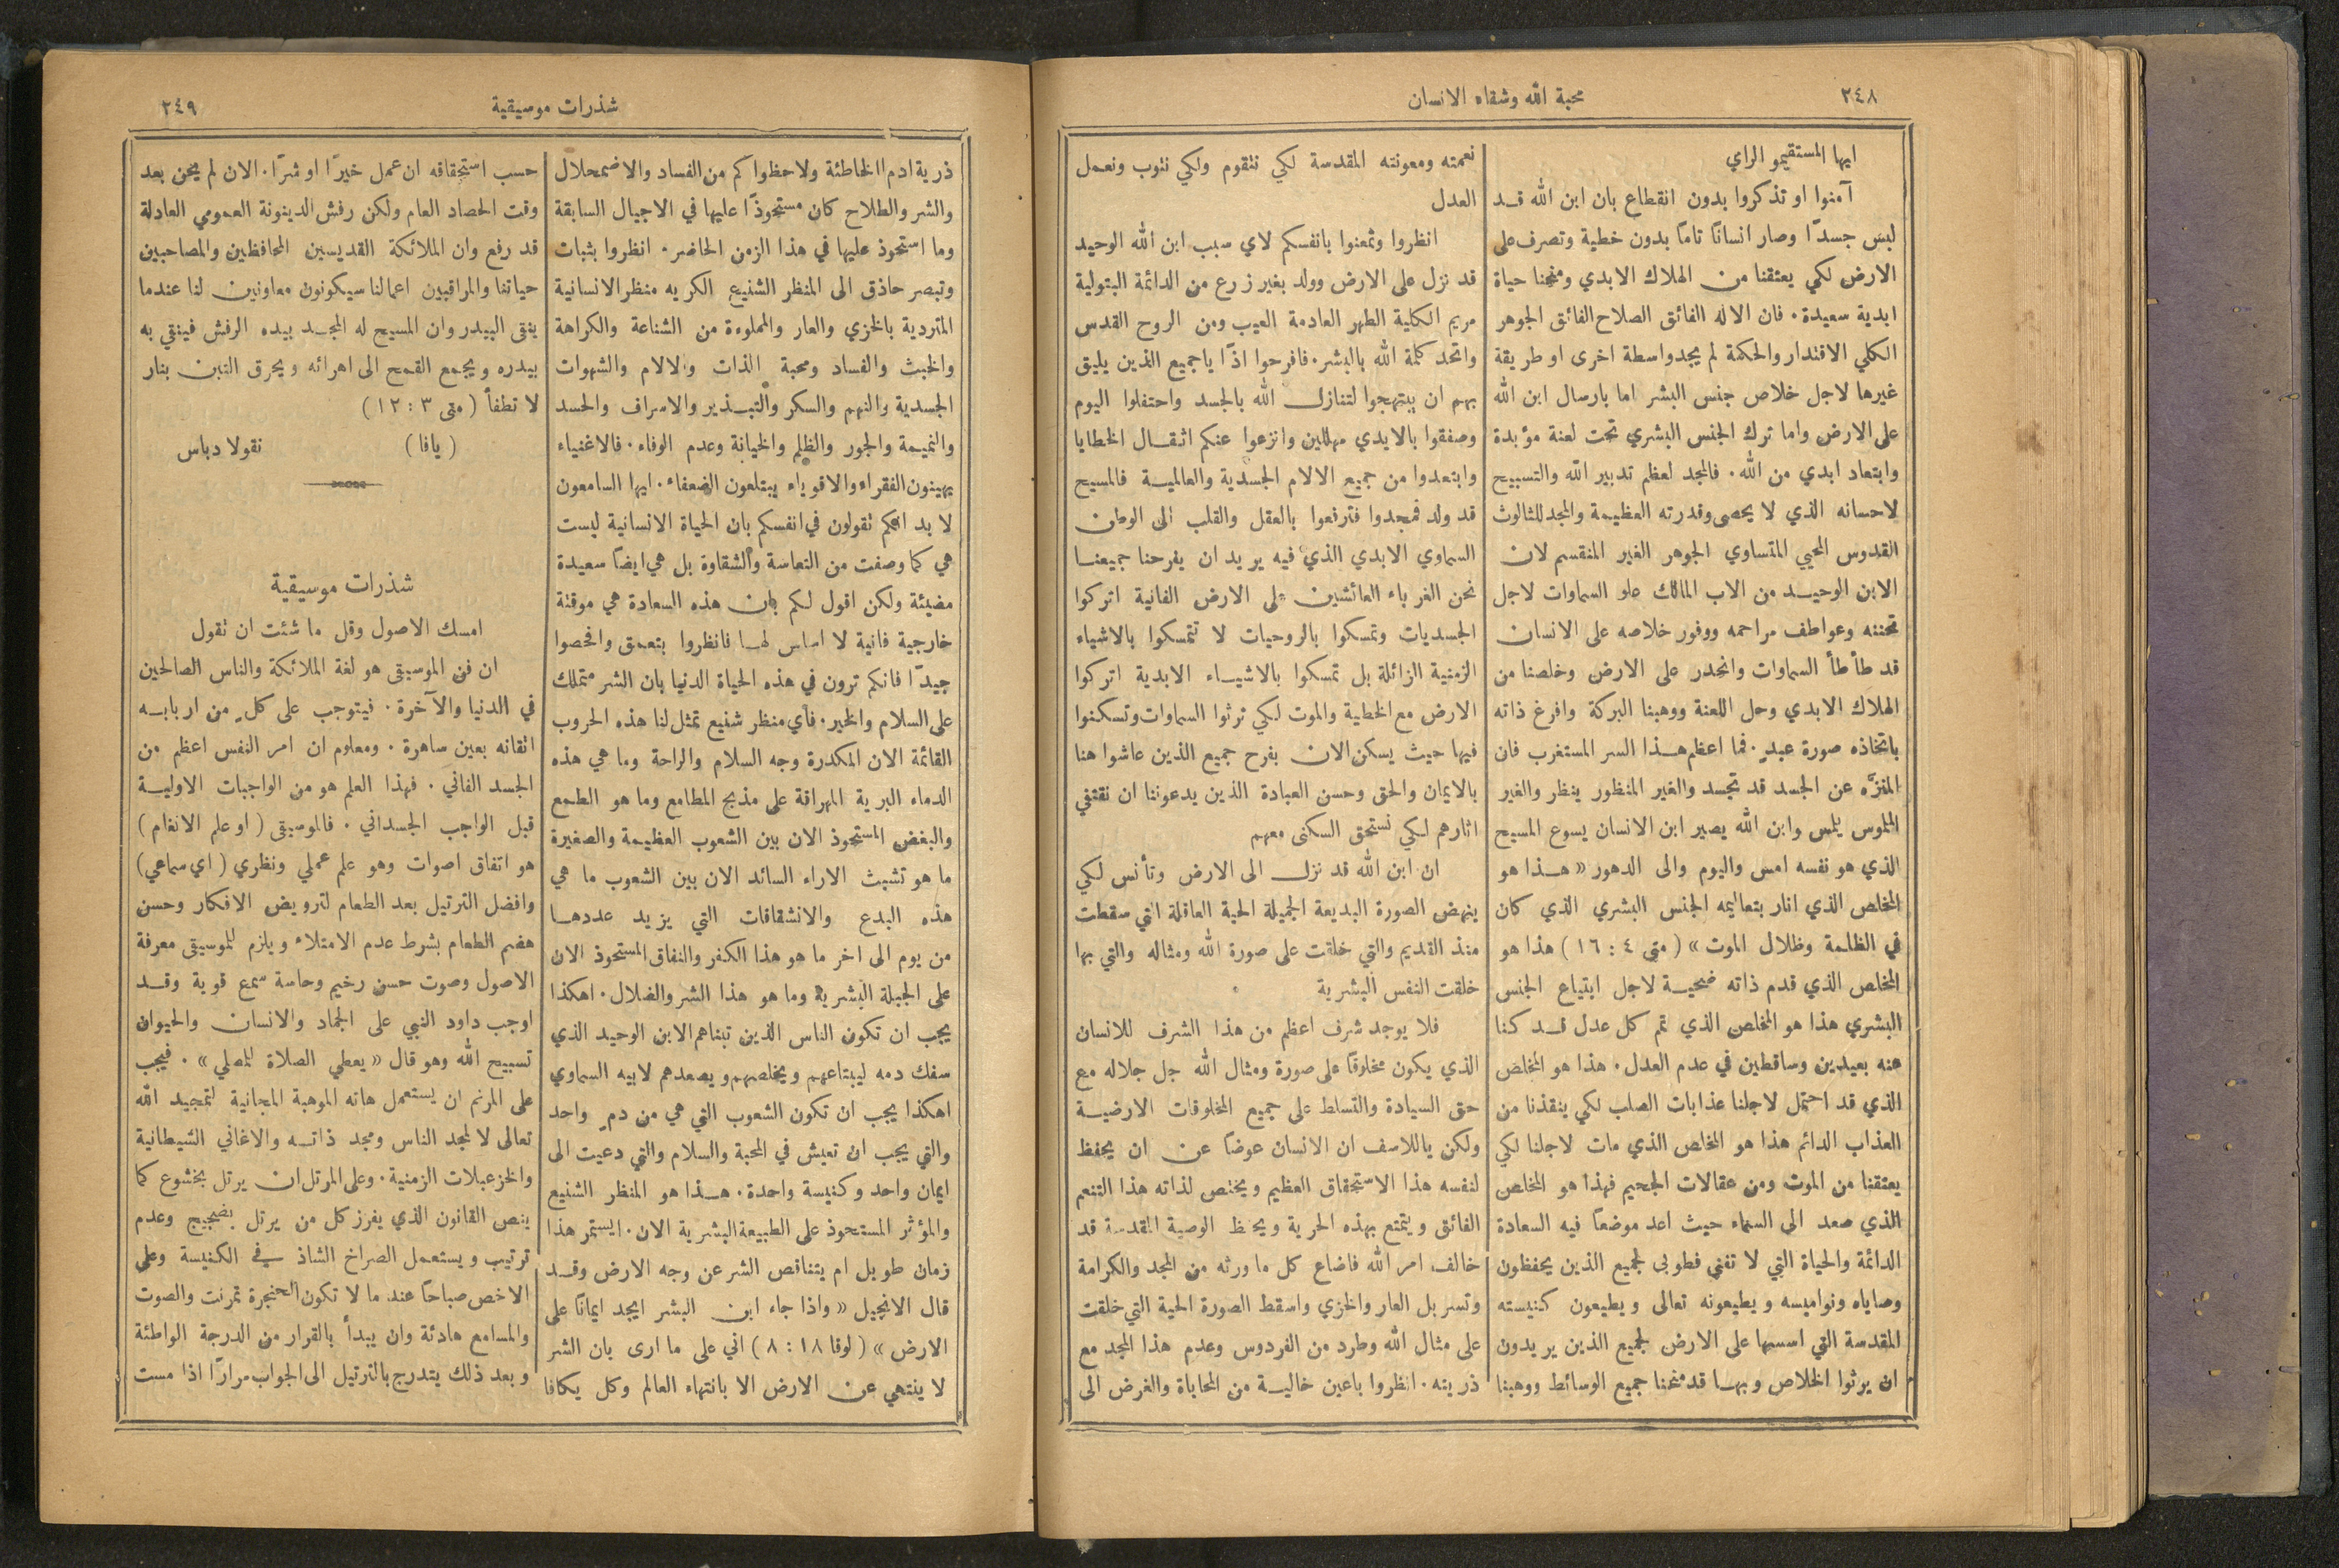 ٢٤٨
محبة الله وشقاء الانسان
ايها المستقيمو الراي
آمنوا او تذكروا بدون انقطاع بان ابن الله قد
لبس جسدًا وصار انسانًا تامًا بدون خطية وتصرف على
الارض لكي يعتقنا من الهلاك الابدي ومنحنا حياة
ابدية سعيدة. فان الاله الفائق الصلاح الفائق الجوهر
الكلي الاقتدار والحكمة لم يجد واسطة اخرى او طريقة
غيرها لاجل خلاص جنس البشر اما بارسال ابن الله
على الارض واما ترك الجنس البشري تحت لعنة مؤبدة
وابتعاد ابدي من الله. فالمجد لعظم تدبير الله والتسبيح
لاحسانه الذي لا يحصى وقدرته العظيمة والمجد للثالوث
القدوس المحيي المتساوي الجوهر الغير المنقسم لان
الابن الوحيد من الاب المالك علو السماوات لاجل
تحننه وعواطف مراحمه ووفور خلاصه على الانسان
قد طأطأ السماوات وانحدر على الارض وخلصنا من
الهلاك الابدي وحل اللعنة ووهبنا البركة وافرغ ذاته
باتخاذه صورة عبدٍ. فما اعظم هذا السر المستغرب فان
المنزَّه عن الجسد قد تجسد والغير المنظور ينظر والغير
الملموس يلمس وابن الله يصير ابن الانسان يسوع المسيح
الذي هو نفسه امس واليوم والى الدهور « هذا هو
المخلص الذي انار بتعاليمه الجنس البشري الذي كان
في الظلمة وظلال الموت » ( متى ٤ : ١٦ ) هذا هو
المخلص الذي قدم ذاته ضحية لاجل ابتياع الجنس
البشري هذا هو المخلص الذي تم كل عدل قد كنا
عنه بعيدين وساقطين في عدم العدل. هذا هو المخلص
الذي قد احتمل لاجلنا عذابات الصلب لكي ينقذنا من
العذاب الدائم هذا هو المخلص الذي مات لاجلنا لكي
يعتقنا من الموت ومن عقالات الجحيم فهذا هو المخلص
الذي صعد الى السماء حيث اعد موضعًا فيه السعادة
الدائمة والحياة التي لا تفنى فطوبى لجميع الذين يحفظون
وصاياه ونواميسه ويطيعونه تعالى ويطيعون كنيسته
المقدسة التي اسسها على الارض لجميع الذين يريدون
ان يرثوا الخلاص وبها قد منحنا جميع الوسائط ووهبنا
نعمته ومعونته المقدسة لكي نتقوم ولكي نتوب ونعمل
العدل
انظروا وتمعنوا بانفسكم لاي سبب ابن الله الوحيد
قد نزل على الارض وولد بغير زرع من الدائمة البتولية
مريم الكلية الطهر العادمة العيب ومن الروح القدس
واتحد كلمة الله بالبشر. فافرحوا اذًا ياجميع الذين يليق
بهم ان يبتهجوا لتنازل الله بالجسد واحتفلوا اليوم
وصفقوا بالايدي مهللين وانزعوا عنكم اثقال الخطايا
وابتعدوا من جميع الالام الجسدية والعالمية فالمسيح
قد ولد فمجدوا فترفعوا بالعقل والقلب الى الوطن
السماوي الابدي الذي فيه يريد ان يفرحنا جميعنا
نحن الغرباء العائشين على الارض الفانية اتركوا
الجسديات وتمسكوا بالروحيات لا تتمسكوا بالاشياء
الزمنية الزائلة بل تمسكوا بالاشياء الابدية اتركوا
الارض مع الخطية والموت لكي ترثوا السماوات وتسكنوا
فيها حيث يسكن الان بفرح جميع الذين عاشوا هنا
بالايمان والحق وحسن العبادة الذين يدعوننا ان نقتفي
اثارهم لكي نستحق السكنى معهم
ان ابن الله قد نزل الى الارض وتأنس لكي
ينهض الصورة البديعة الجميلة الحية العاقلة التي سقطت
منذ القديم والتي خلقت على صورة الله ومثاله والتي بها
خلقت النفس البشرية
فلا يوجد شرف اعظم من هذا الشرف للانسان
الذي يكون مخلوقًا على صورة ومثال الله جل جلاله مع
حق السيادة والتسلط على جميع المخلوقات الارضية
ولكن ياللاسف ان الانسان عوضًا عن ان يحفظ
لنفسه هذا الاستحقاق العظيم ويختص لذاته هذا التنعم
الفائق ويتمتع بهذه الحرية ويحفظ الوصية المقدسة قد
خالف امر الله فاضاع كل ما ورثه من المجد والكرامة
وتسربل العار والخزي واسقط الصورة الحية التي خلقت
على مثال الله وطرد من الفردوس وعدم هذا المجد مع
ذريته. انظروا باعين خالية من المحاباة والغرض الى
شذرات موسيقية
٢٤٩
ذرية ادم الخاطئة ولاحظوا كم من الفساد والاضمحلال
والشر والطلاح كان مستحوذًا عليها في الاجيال السابقة
وما استحوذ عليها في هذا الزمن الحاضر. انظروا بثبات
وتبصر حاذق الى المنظر الشنيع الكريه منظر الانسانية
المتردية بالخزي والعار والمملوءة من الشناعة والكراهة
والخبث والفساد ومحبة الذات والالام والشهوات
الجسدية والنهم والسكر والتبذير والاسراف والحسد
والنميمة والجور والظلم والخيانة وعدم الوفاء. فالاغنياء
يهينون الفقراء والاقوياء يبتلعون الضعفاء. ايها السامعون
لا بد انكم تقولون في انفسكم بان الحياة الانسانية ليست
هي كما وصفت من التعاسة والشقاوة بل هي ايضًا سعيدة
مضيئة ولكن اقول لكم بان هذه السعادة هي موقتة
خارجية فانية لا اساس لها فانظروا بتعمق وافحصوا
جيدًا فانكم ترون في هذه الحياة الدنيا بان الشر متملك
على السلام والخير. فأي منظر شنيع تمثل لنا هذه الحروب
القائمة الان المكدرة وجه السلام والراحة وما هي هذه
الدماء البرية المهراقة على مذبح المطامع وما هو الطمع
والبغض المستحوذ الان بين الشعوب العظيمة والصغيرة
ما هو تشبث الاراء السائد الان بين الشعوب ما هي
هذه البدع والانشقاقات التي يزيد عددها
من يوم الى اخر ما هو هذا الكفر والنفاق المستحوذ الان
على الجبلة البشرية وما هو هذا الشر والضلال. اهكذا
يجب ان تكون الناس الذين تبناهم الابن الوحيد الذي
سفك دمه ليبتاعهم ويخلصهم ويصعدهم لابيه السماوي
اهكذا يجب ان تكون الشعوب التي هي من دمٍ واحد
والتي يجب ان تعيش في المحبة والسلام والتي دعيت الى
ايمان واحد وكنيسة واحدة. هذا هو المنظر الشنيع
والمؤثر المستحوذ على الطبيعة البشرية الان. ايستمر هذا
زمان طويل ام يتناقص الشر عن وجه الارض وقد
قال الانجيل « واذا جاء ابن البشر ايجد ايمانًا على
الارض » ( لوقا ١٨ : ٨ ) اني على ما ارى بان الشر
لا ينتهي عن الارض الا بانتهاء العالم وكل يكافا
حسب استحقاقه ان عمل خيرًا او شرًا. الان لم يحن بعد
وقت الحصاد العام ولكن رفش الدينونة العمومي العادلة
قد رفع وان الملائكة القديسين المحافظين والمصاحبين
حياتنا والمراقبين اعمالنا سيكونون معاونين لنا عندما
ينقى البيدر وان المسيح له المجد بيده الرفش فينقي به
بيدره ويجمع القمح الى اهرائه ويحرق التبن بنار
لا تطفأ ( متى ٣ : ١٢ )
( يافا ) نقولا دباس
شذرات موسيقية
امسك الاصول وقل ما شئت ان تقول
ان فن الموسيقى هو لغة الملائكة والناس الصالحين
في الدنيا والآخرة. فيتوجب على كلٍ من اربابه
اتقانه بعين ساهرة. ومعلوم ان امر النفس اعظم من
الجسد الفاني. فهذا العلم هو من الواجبات الاولية
قبل الواجب الجسداني. فالموسيقى ( او علم الانغام )
هو اتفاق اصوات وهو علم عملي ونظري ( اي سماعي )
وافضل الترتيل بعد الطعام لترويض الافكار وحسن
هضم الطعام بشرط عدم الامتلاء ويلزم للموسيقى معرفة
الاصول وصوت حسن رخيم وحاسة سمع قوية وقد
اوجب داود النبي على الجماد والانسان والحيوان
تسبيح الله وهو قال « يعطي الصلاة للمصلي ». فيجب
على المرنم ان يستعمل هاته الموهبة المجانية لتمجيد الله
تعالى لا لمجد الناس ومجد ذاته والاغاني الشيطانية
والخزعبلات الزمنية. وعلى المرتل ان يرتل بخشوع كما
ينص القانون الذي يفرز كل من يرتل بضجيج وعدم
ترتيب ويستعمل الصراخ الشاذ في الكنيسة وعلى
الاخص صباحًا عند ما لا تكون الحنجرة تمرنت والصوت
والمسامع هادئة وان يبدأ بالقرار من الدرجة الواطئة
وبعد ذلك يتدرج بالترتيل الى الجواب مرارًا اذا مست